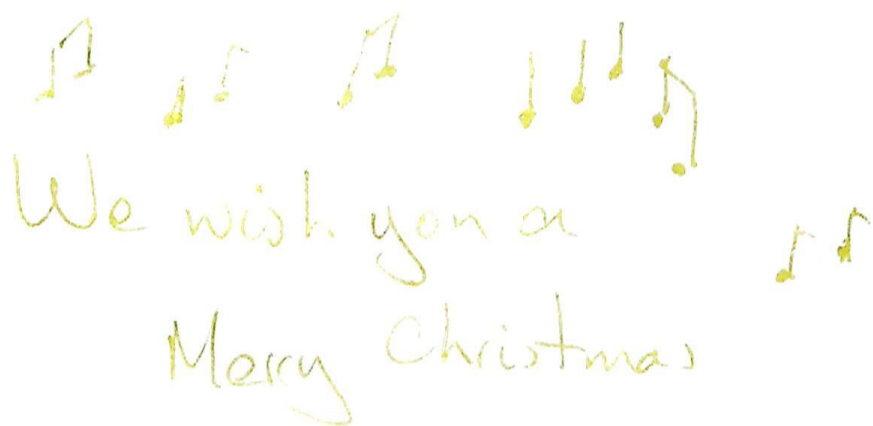 We wish you a
Merry Christmas